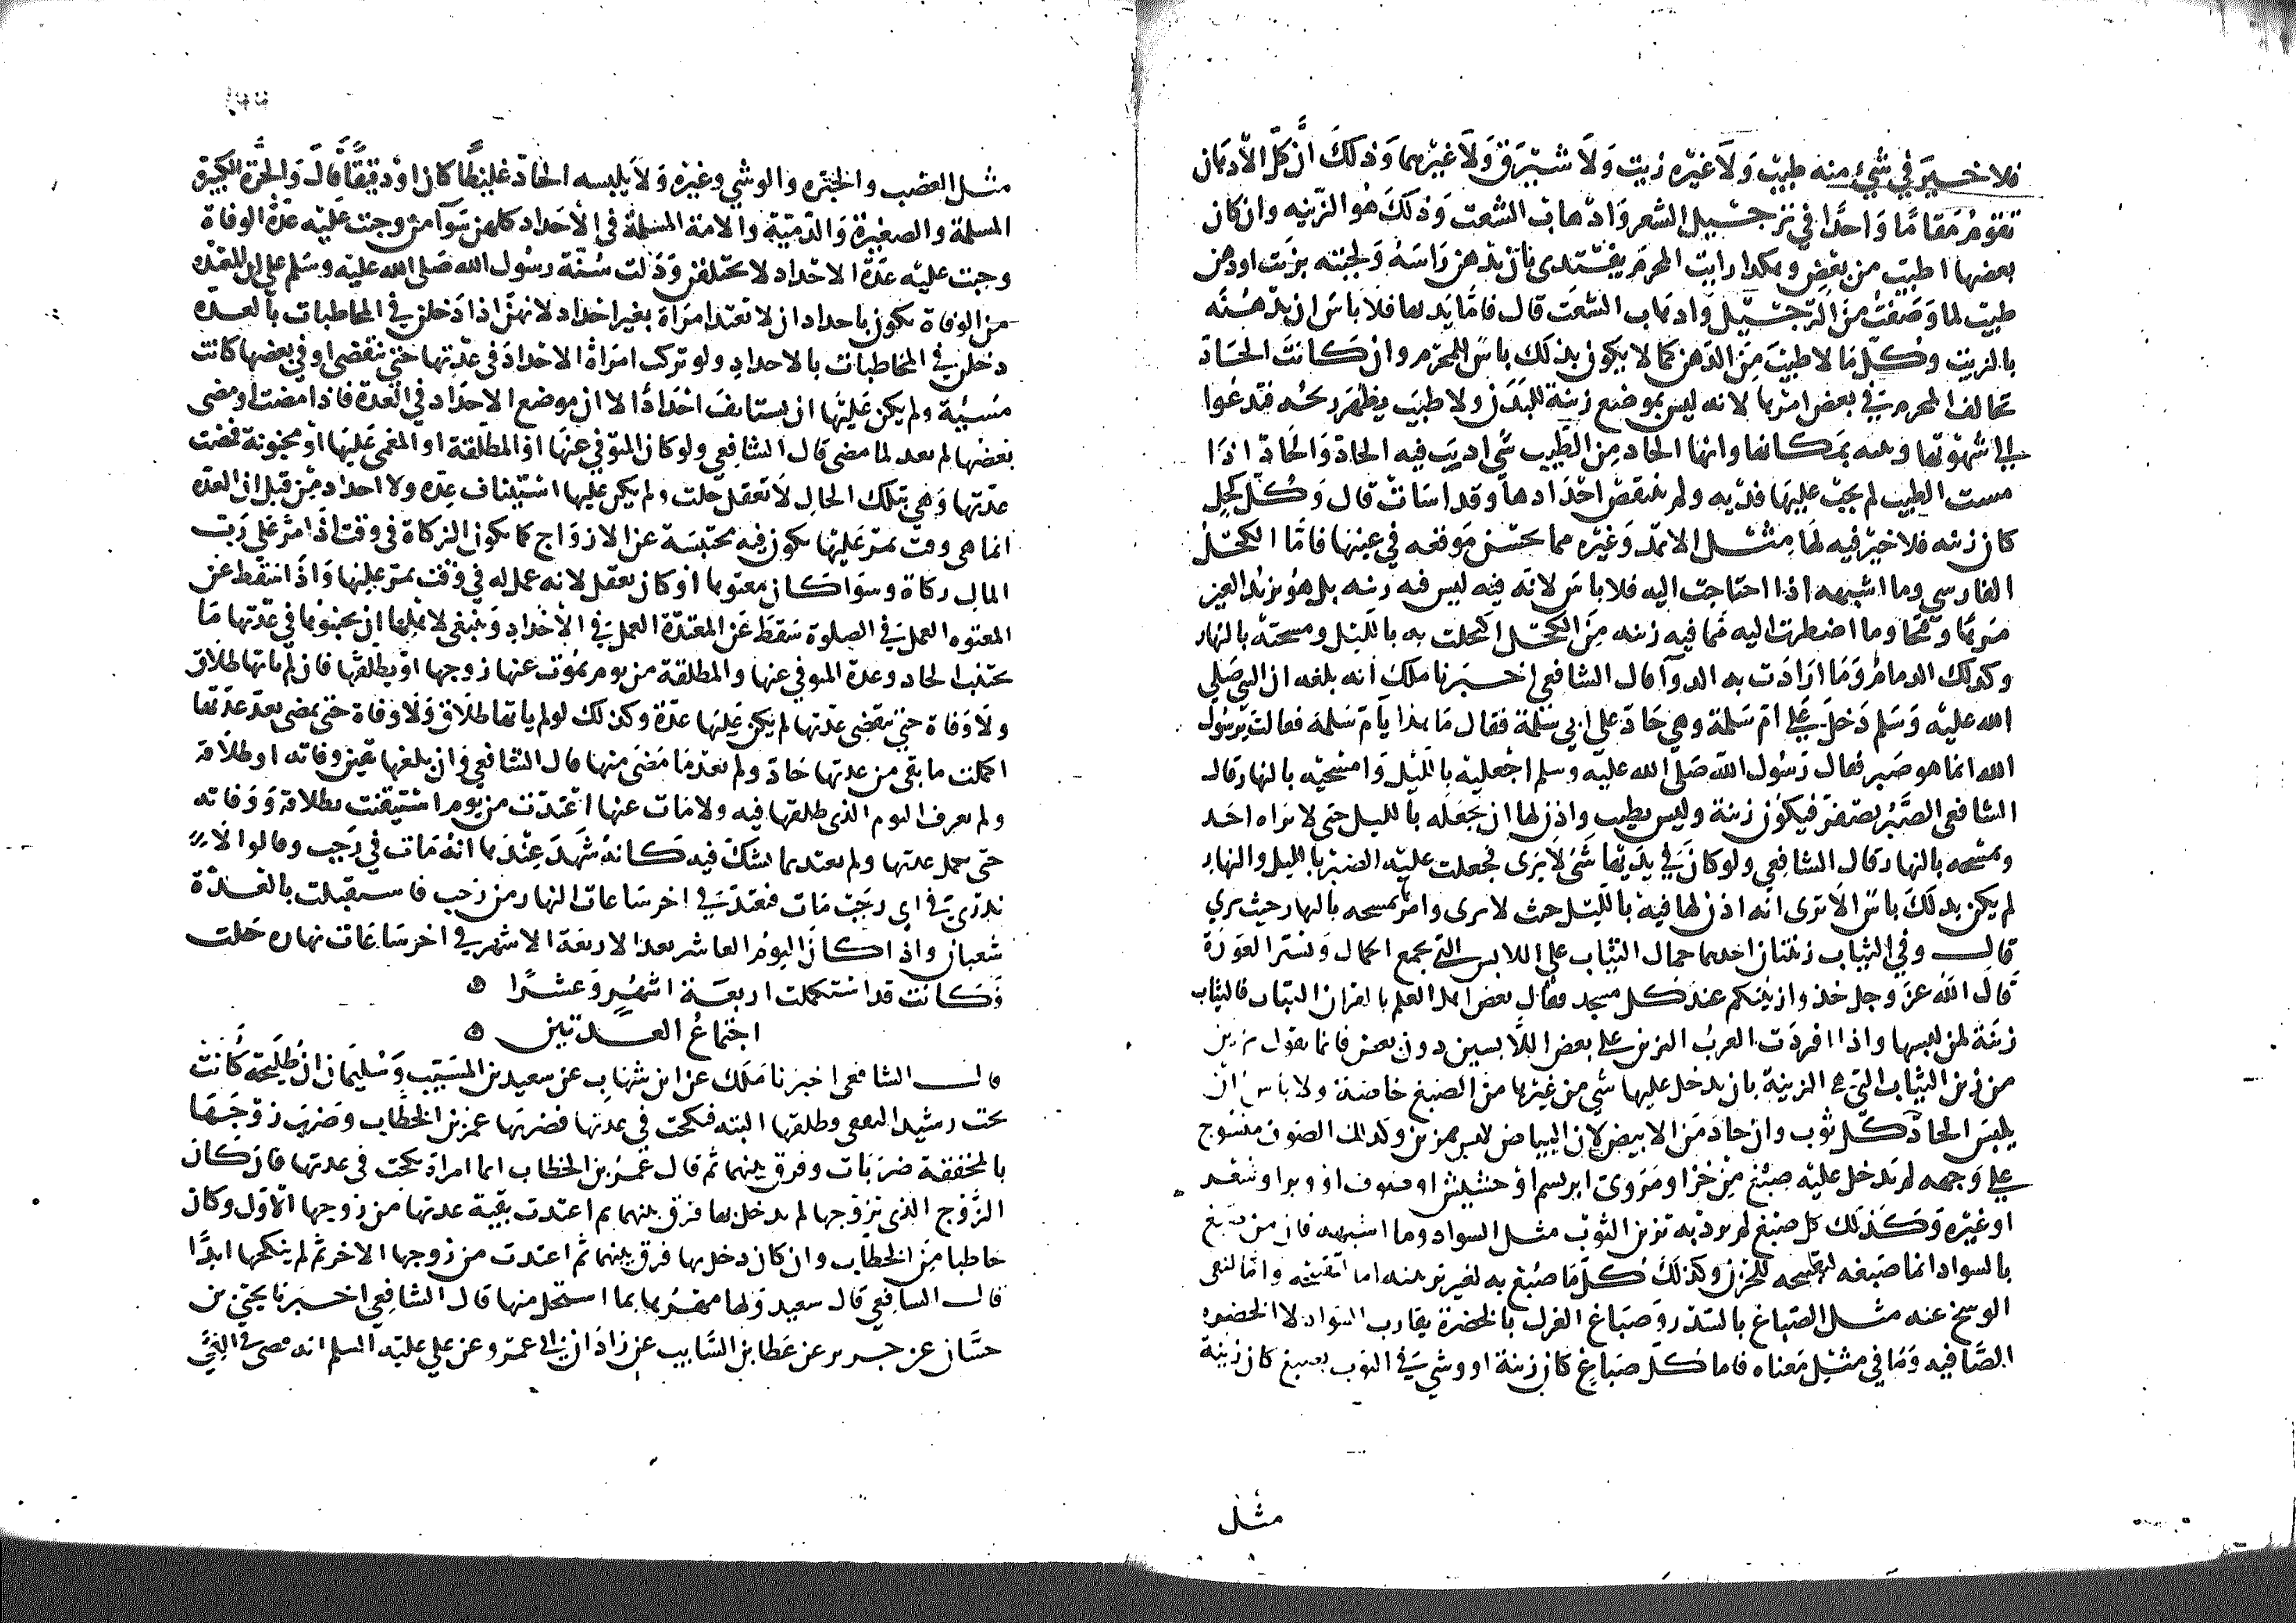 فلا خير في شيء منه طيب ولا غيره زيت ولا شبرق ولا غيرهما وذلك أن كل الأدهان
تقوم مقاما واحدا في ترجيل الشعر واذهاب الشعث وذلك هو الزينه وان كان
بعضها اطيب من بعض وهكذا رايت المحرم يفتدى بان يدهن راسه ولحيته بزيت او دهن
طيب لما وصفت من الترجيل واذهاب الشعث قال فاما يديها فلا باس ان يدهنه
بالزيت وكل ما لا طيب من الدهن كما لا يكون بذلك باس للمحرم وان كانت الحاد
تخالف المحرم في بعض امرها لانه ليس بموضع زينة للبدن ولا طيب يظهر ريحه فتدعوا
الى شهوتها وهنه بمكانها وانما الحاد من الطيب شي اديب فيه الحاد والحاد اذا
مست الطيب لم يجب عليها فديه ولم ينتقض احدادها وقد اسات قال وكل كحل
كان زينه فلا خير فيه لها مثل الاثمد وغيره مما يحسن موقعه في عينها فاما الكحل
الفارسي وما اشبهه اذا احتاجت اليه فلا باس لانه فيه ليس فيه زينه بل هو يزيد العين
مرها وقبحا وما اضطرت اليه مما فيه زينه من الكحل اكتحلت به بالليل ومسحته بالنهار
وكذلك الدمام وما ارادت به الدوا قال الشافعي اخبرنا ملك انه بلغه ان النبي صلى
الله عليه وسلم دخل على ام سلمة وهي حاد على ابي سلمة فقال ما هذا يا ام سلمة فقالت يرسول
الله انما هو صبر فقال رسول الله صلى الله عليه وسلم اجعليه بالليل وامسحيه بالنهار قال
الشافعي الصبر يصفر فيكون زينة وليس بطيب واذن لها ان تجعله بالليل حتى لا يراه احد
وتمسحه بالنهار قال الشافعي ولو كان في يديها شي لا يرى فجعلت عليه الصبر بالليل والنهار
لم يكن بذلك باس الا ترى انه اذن لها فيه بالليل حيث لا يرى وامر بمسحه بالنهار حيث يري
قال وفي الثياب زينتان احدهما جمال الثياب على اللابس التي تجمع الجمال وتستر العورة
قال الله عز وجل خذوا زينتكم عند كل مسجد فقال بعض اهل العلم بالقران الثياب فالثياب
زينة لمن لبسها واذا افردت العرب التزين على بعض اللابسين دون بعض فانما تقول تزين
من زين الثياب التي هي الزينة بان يدخل عليها شي من غيرها من الصبغ خاصة ولا باس ان
يلبس الحاد كل ثوب وان جاد من الابيض لان البياض ليس بمزين وكذلك الصوف منسوج
على وجهه لم يدخل عليه صبغ من خز او مروى ابريسم او حشيش او صوف او وبر او شعر
او غيره وكذلك كل صبغ لم يرد به تزيين الثوب مثل السواد وما اشبهه فان من صبغ
بالسواد انما صبغه لتقبيحه للحزن وكذلك كل ما صبغ به لغير تزينه اما لتقبيحه واما لنفي
الوسخ عنه مثل الصباغ بالسدر وصباغ الغزل بالخضرة يقارب السواد لا الخضره
الصافيه وما في مثل معناه فاما كل صباغ كان زينة او وشي في الثوب بصبغ كان زينة
مثل
مثل العصب والحبره والوشي وغيره ولا يلبسه الحاد غليظا كان او دقيقا قال والحرة الكبيرة
المسلمة والصغيرة والذمية والامة المسلمة في الأحداد كلهن سوآ من وجبت عليه عدة الوفاة
وجبت عليه عدة الاحداد لا يختلفن ودلت سنة رسول الله صلى الله عليه وسلم على ان للعدة
من الوفاة تكون باحداد ان لا تعتد امرأة بغير احداد لانهن اذا دخلن في المخاطبات بالعده
دخلن في المخاطبات بالاحداد ولو تركت امراة الاحداد في عدتها حتى تنقضى او في بعضها كانت
مسيئة ولم يكن عليها ان تستانف احدادا لان موضع الاحداد في العدة فاذا مضت او مضى
بعضها لم يعد لما مضى قال الشافعي ولو كان المتوفي عنها او المطلقة او المغمى عليها او مجنونة فمضت
عدتها وهي بتلك الحال لا تعقل حلت ولم يكن عليها استيناف عده ولا احداد من قبل ان العده
انما هي وقت يمر عليها تكون فيه محتبسة عن الازواج كما تكون الزكاة في وقت اذا مر على رب
المال زكاة وسوا كان معتوها او كان يعقل لانه عمل له في وقت يمر عليها واذا سقط عن
المعتوه العمل في الصلوة سقط عن المعتدة العمل في الأحداد وينبغي لاهلها ان يجنبوها في عدتها ما
تجتنب الحاد وعدة المتوفي عنها والمطلقة من يوم يموت عنها زوجها او يطلقها فان لم ياتها طلاق
ولا وفاة حتى تنقضى عدتها لم يكن عليها عدة وكذلك لو لم ياتها طلاق ولا وفاة حتى يمضى بعد عدتها
اكملت ما بقى من عدتها حاد ولم تعد ما مضى منها قال الشافعي وان بلغها يقين وفاته او طلاقه
ولم تعرف اليوم الذى طلقها فيه ولا مات عنها اعتدت من يوم استيقنت بطلاقه ووفاته
حتى تكمل عدتها ولم تعتد بما تشك فيه كانه شهد عندها انه مات في رجب وقالوا لا
ندرى في اي رجب مات فتعتد في اخر ساعات النهار من رجب فاستقبلت بالعدة
شعبان واذا كان اليوم العاشر بعد الاربعة الاشهر في اخر ساعات نهاره حلت
وكانت قد استكملت اربعة اشهر وعشرا ه
اجتماع العدتين ه
قال الشافعي اخبرنا ملك عن ابن شهاب عن سعيد بن المسيب وسليمان ان طليحة كانت
تحت رشيد الثقفي وطلقها البته فنكحت في عدتها فضربها عمر بن الخطاب وضرب زوجها
بالمخفقة ضربات وفرق بينهما ثم قال عمر بن الخطاب ايما امراة نكحت في عدتها فان كان
الزوج الذي تزوجها لم يدخل بها فرق بينهما ثم اعتدت بقية عدتها من زوجها الأول وكان
خاطبا من الخطاب وان كان دخل بها فرق بينهما ثم اعتدت من زوجها الاخر ثم لم ينكحها ابدا
قال الشافعي قال سعيد ولها مهرها بما استحل منها قال الشافعي اخبرنا يحيى بن
حسان عن جرير عن عطا بن السايب عن زاذان ابي عمرو عن علي عليه السلم انه قضى في التي